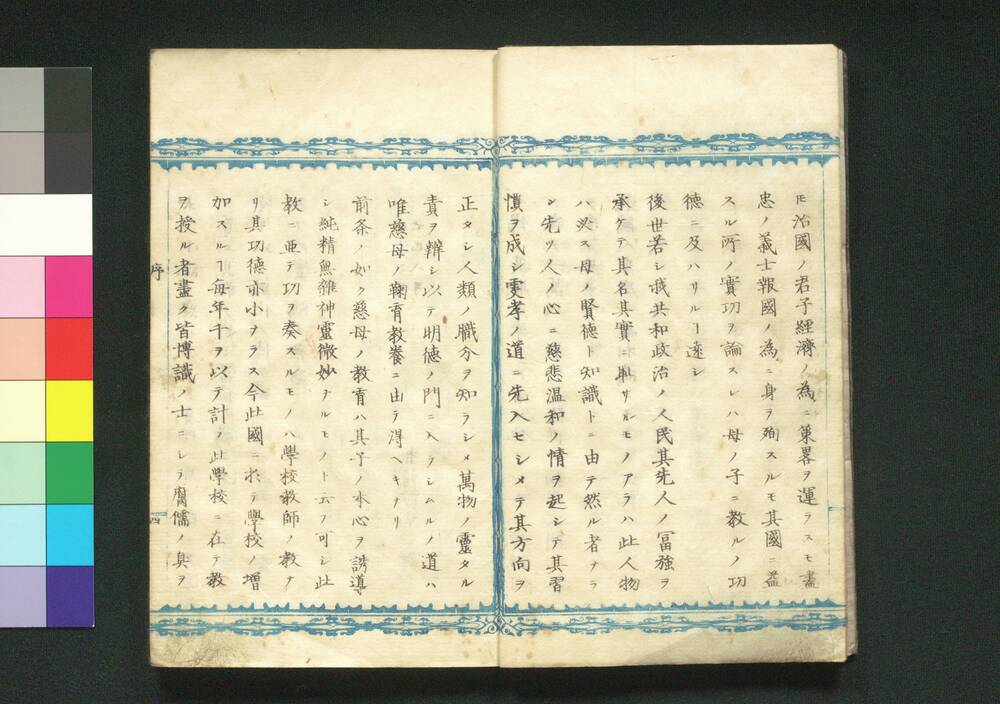 𪜈治國ノ君子經濟ノ為ニ策畧ヲ運ラスモ盡
忠ノ義士報國ノ為ニ身ヲ殉スルモ其國ニ益
スル所ノ實功ヲ論スレハ母ノ子ニ教ルノ功
徳ニ及ハサルヿ遠シ
後世若シ我共和政治ノ人民其先人ノ冨強ヲ
承ケテ其名其實ニ耻サルモノアラハ此人物
ハ必ス母ノ賢徳ト知識トニ由テ然ル者ナラ
ン先ツ人ノ心ニ慈悲温和ノ情ヲ起シテ其習
慣ヲ成シ雯孝ノ道ニ先入セシメテ其方向ヲ
正タシ人類ノ職分ヲ知ラシメ萬物ノ靈タル
責ヲ辯シ以テ明徳ノ門ニ入ラシムルノ道ハ
唯慈母ノ鞠育教養ニ由テ得ヘキナリ
前条ノ如ク慈母ノ教育ハ其子ノ本心ヲ誘導
シ純精無雜神靈微妙ナルモノト云フ可シ此
教ニ亜テ功ヲ奏スルモノハ學校教師ノ教ナ
リ其功徳亦小ヲラス今此國ニ於テ學校ノ増
加スルヿ毎年千ヲ以テ計フ此學校ニ在テ教
ヲ授ル者盡ク皆博識ノ士ニシテ腐儒ノ臭ヲ
序
四